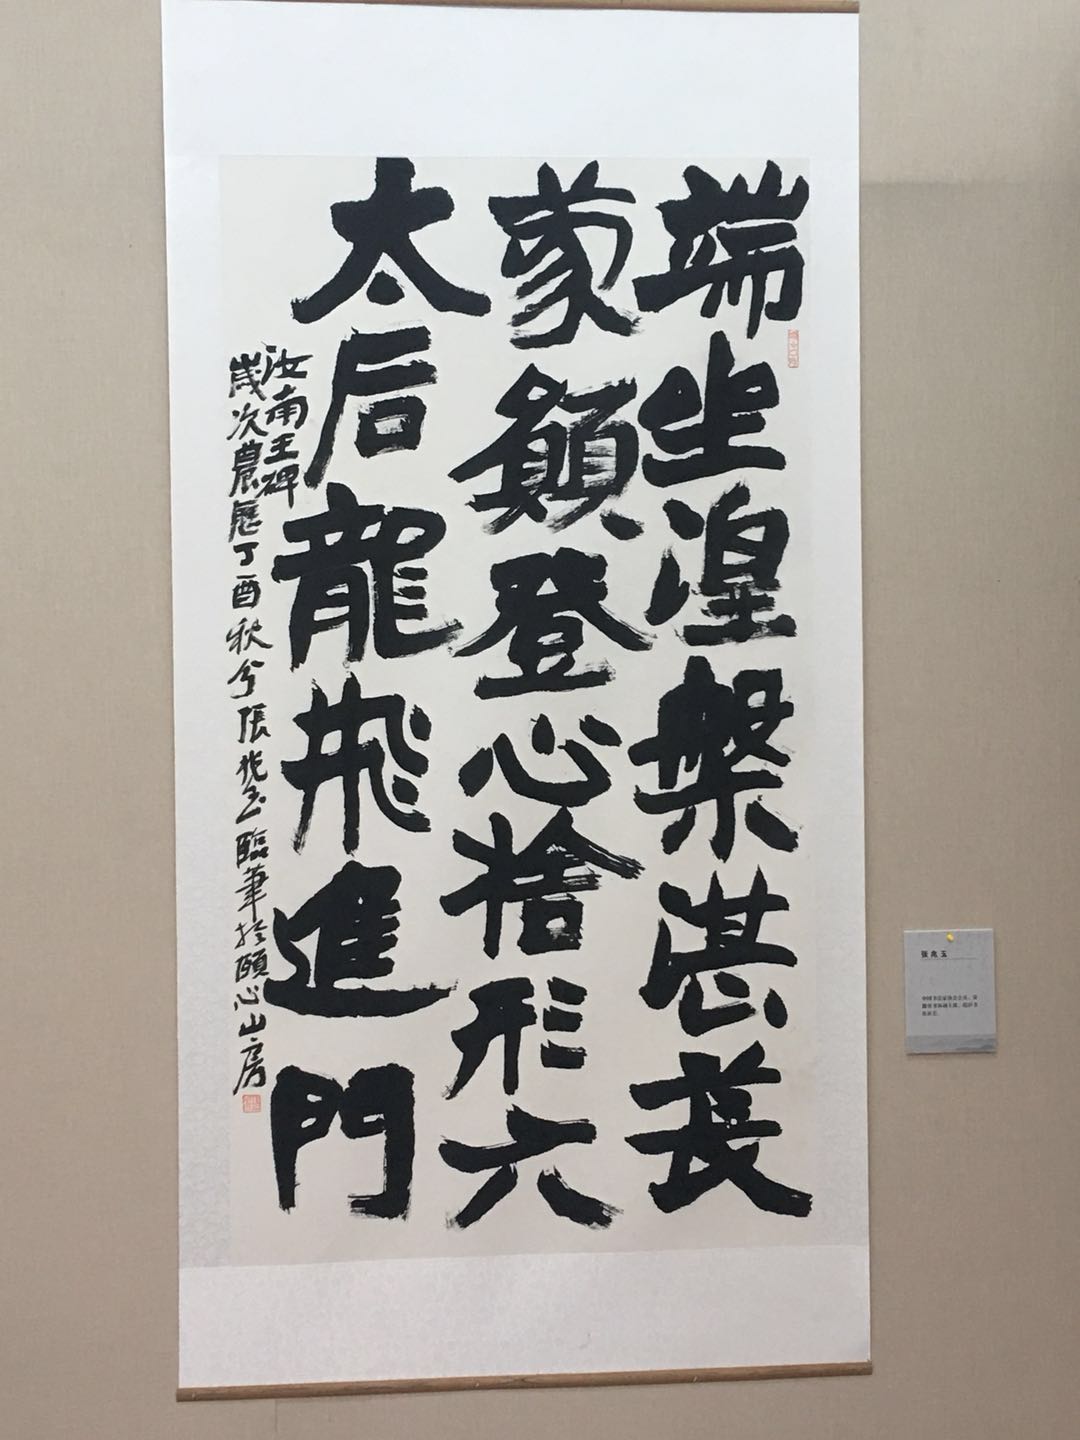 端坐湟槃湛萇
蒙顛登心捨形六
太后龍飛進門
汝南王碑
歲次農歷丁酉秋兮張兆玉臨筆於頤心山房
张兆玉